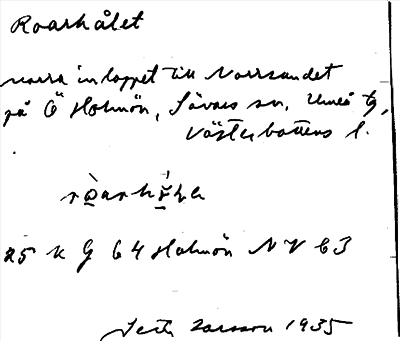 Roarhålet
norra inloppet till Norrsundet
på Ö Holmön, Sävars sn, Umeå tg,
Västerbottens l.
25 K G 64 Holmön NV C3
Larsson 1935